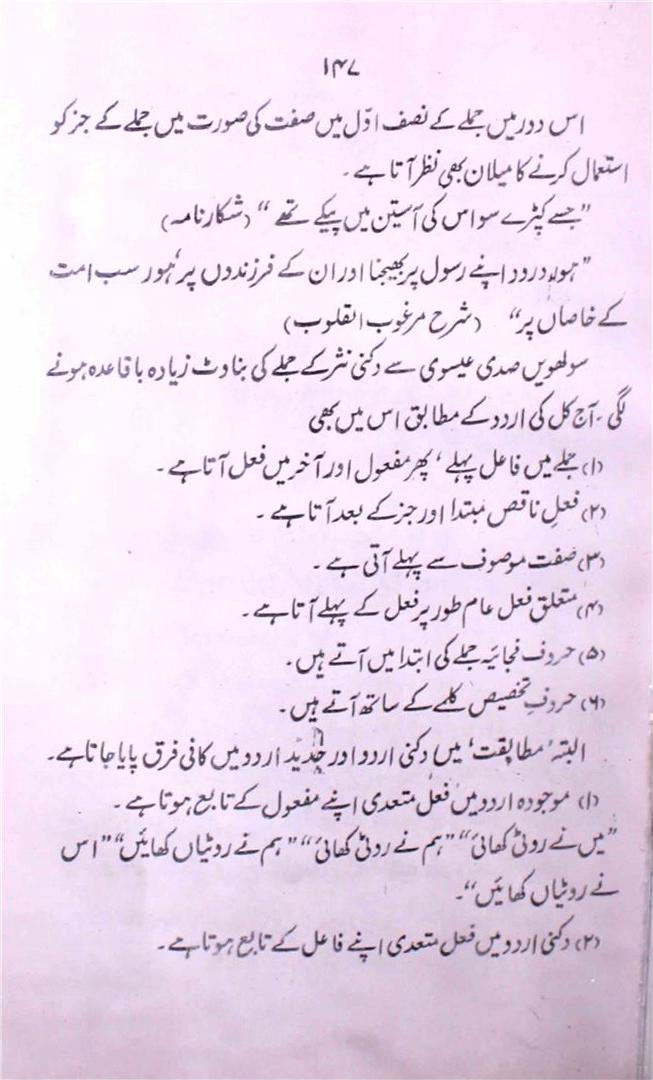 ۱۴۷
اس دور میں جملے کے نصف اوّل میں صفت کی صورت میں جملے کے جز کو
استعمال کرنے کا میلان بھی نظر آتا ہے۔
"جسے کپڑے سو اس کی آستین میں پیکے تھے" (شکار نامہ)
"ہور درود اپنے رسول پر بھیجنا اور ان کے فرزندوں پر، ہور سب امت
کے خاصاں پر" (شرح مرغوب القلوب)
سولھویں صدی عیسوی سے دکنی نثر کے جملے کی بناوٹ زیادہ باقاعدہ ہونے
لگی۔ آج کل کی اردو کے مطابق اس میں بھی
(۱) جملے میں فاعل پہلے، پھر مفعول اور آخر میں فعل آتا ہے۔
(۲) فعلِ ناقص مبتدا اور جز کے بعد آتا ہے۔
(۳) صفت موصوف سے پہلے آتی ہے۔
(۴) متعلق فعل عام طور پر فعل کے پہلے آتا ہے۔
(۵) حروف فجائیہ جملے کی ابتدا میں آتے ہیں۔
(۶) حروفِ تخصیص کلمے کے ساتھ آتے ہیں۔
البتہ 'مطابقت' میں دکنی اردو اور جدید اردو میں کافی فرق پایا جاتا ہے۔
(۱) موجودہ اردو میں فعل متعدی اپنے مفعول کے تابع ہوتا ہے۔
"میں نے روٹی کھائی" "ہم نے روٹی کھائی" "ہم نے روٹیاں کھائیں" "اس
نے روٹیاں کھائیں"۔
(۲) دکنی اردو میں فعل متعدی اپنے فاعل کے تابع ہوتا ہے۔